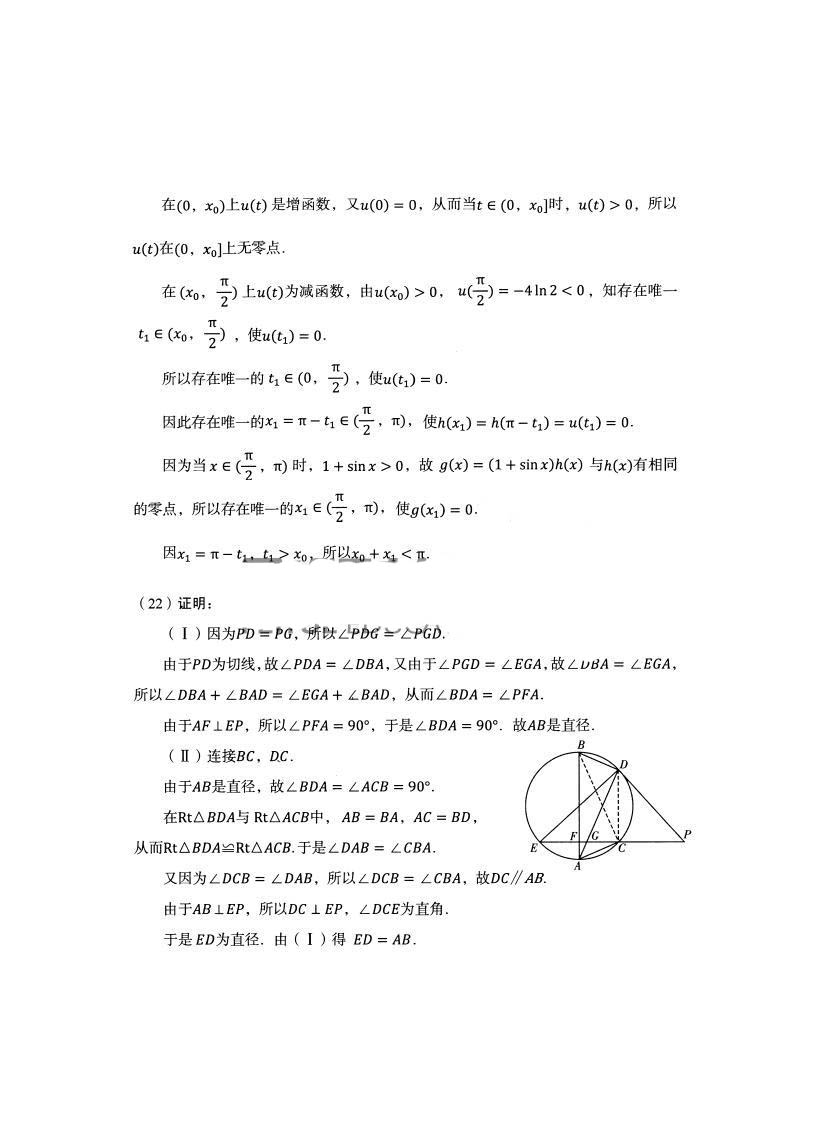 在(0, x₀)上u(t) 是增函数，又u(0) = 0，从而当t ∈ (0, x₀]时，u(t) > 0，所以
u(t)在(0, x₀]上无零点.
在 (x₀, π/2) 上u(t)为减函数，由u(x₀) > 0， u(π/2) = −4 ln 2 < 0 ，知存在唯一
t₁ ∈ (x₀, π/2) ，使u(t₁) = 0.
所以存在唯一的 t₁ ∈ (0, π/2) ，使u(t₁) = 0.
因此存在唯一的x₁ = π − t₁ ∈ (π/2 , π)，使h(x₁) = h(π − t₁) = u(t₁) = 0.
因为当 x ∈ (π/2 , π) 时，1 + sin x > 0，故 g(x) = (1 + sin x)h(x) 与h(x)有相同
的零点，所以存在唯一的x₁ ∈ (π/2 , π)，使g(x₁) = 0.
因x₁ = π − t₁，t₁ > x₀，所以x₀ + x₁ < π.
（22）证明：
（Ⅰ）因为PD = PG，所以∠PDG = ∠PGD.
由于PD为切线，故∠PDA = ∠DBA，又由于∠PGD = ∠EGA，故∠DBA = ∠EGA，
所以∠DBA + ∠BAD = ∠EGA + ∠BAD，从而∠BDA = ∠PFA.
由于AF⊥EP，所以∠PFA = 90°，于是∠BDA = 90°. 故AB是直径.
（Ⅱ）连接BC，DC.
由于AB是直径，故∠BDA = ∠ACB = 90°.
在Rt△BDA与 Rt△ACB中， AB = BA，AC = BD，
从而Rt△BDA≌Rt△ACB. 于是∠DAB = ∠CBA.
又因为∠DCB = ∠DAB，所以∠DCB = ∠CBA，故DC∥AB.
由于AB⊥EP，所以DC ⊥ EP，∠DCE为直角.
于是 ED为直径. 由（Ⅰ）得 ED = AB.
B
D
E
F
G
C
P
A